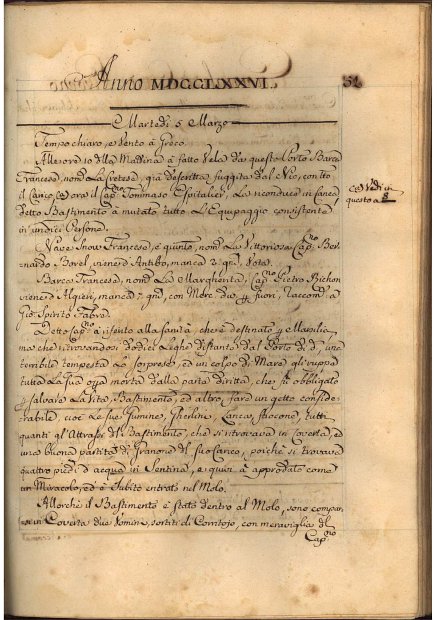 Anno MDCCLXXVI.
51
Martedì 5 Marzo
Tempo chiaro, e Vento à Greco.
Alle ore 10 della Mattina à fatto Vela da questo Porto Barca
Francese, nom. La Cetese, già descritta, fuggita dal Nio, con tto
il Carico, ed ora il Cap.no Tommaso Espitalier, La riconduce in Carica
detto Bastimento à mutato tutto L'Equipaggio consistente
in undici Persone.
Nave Snow Francese, e quinto, nom. La Vittoriosa, Cap.no Ber=
nardo Borel viene d'Antibo, manca 2 gni, Vota.
Barca Francese, nom. La Margherita, Cap.no Pietro Bichon
viene d'Algieri, manca 7 gni, con Merc. due p fuori, raccom. à
Gio: Spirito Fabre.
Detto Cap.no à riferito alla Sanità che è destinato p Marsilia
ma che ritrovandosi dodici Leghe distante dal Porto di d., una
terribile tempesta Lo sorprese, ed un colpo di Mare gli ruppe
tutta La sua opa morta dalla parte diritta, che fu obbligato
p salvare La Vita, Bastimento, ed altro, fare un getto conside=
rabile, cioè Le sue Gumine, Gherlini, Lancia, tutti
quanti gl'Attrassi del Bastimento, che si ritrovava in Coverta, ed
una buona partita di Granone del suo Carico, poiche si trovava
quattro piedi d'acqua in Sentina, e quivi à approdato come
un Miracolo, ed è subito entrato nel Molo.
Allorchè il Bastimento è stato dentro al Molo, sono compar=
si in Coverta due Uomini, sortiti di Corritojo, con meraviglia del
Cap.no
questo a 8